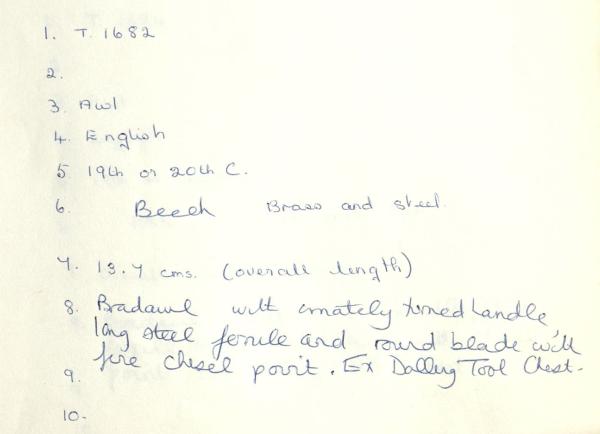 1. T. 1682
2.
3. Awl
4. English
5. 19th or 20th C.
6. Beech Brass and steel.
7. 13.7 cms. (overall length)
8. Bradawl with ornately turned handle,
long steel ferrule and round blade with
fine chisel point. Ex Tool Chest.
9.
10.